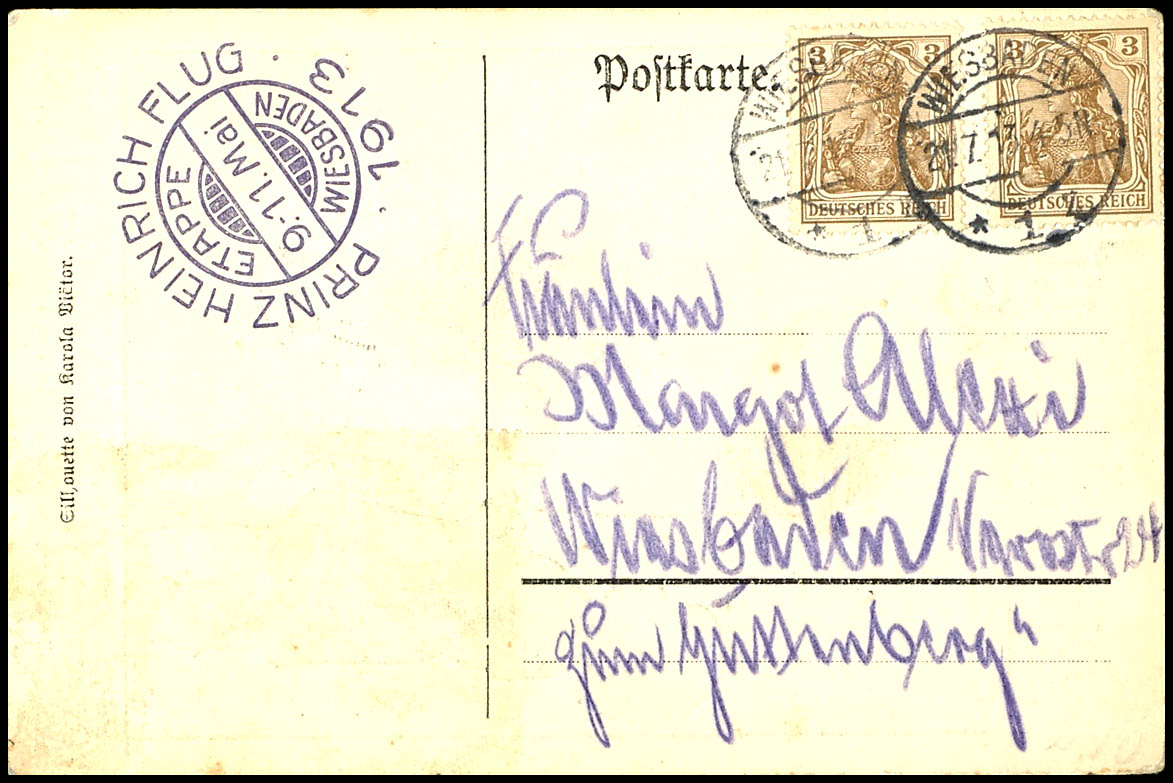 Postkarte.
3 3
DEUTSCHES REICH
3 3
DEUTSCHES REICH
WIESBADEN
* 1
WIESBADEN
21.7.13
* 1
PRINZ HEINRICH FLUG · 1913 ·
ETAPPE
9.-11. Mai
WIESBADEN
Silhouette von Karola Victor.
Fräulein
Margot
Wiesbaden Nerostr 24
zum Guttenberg"